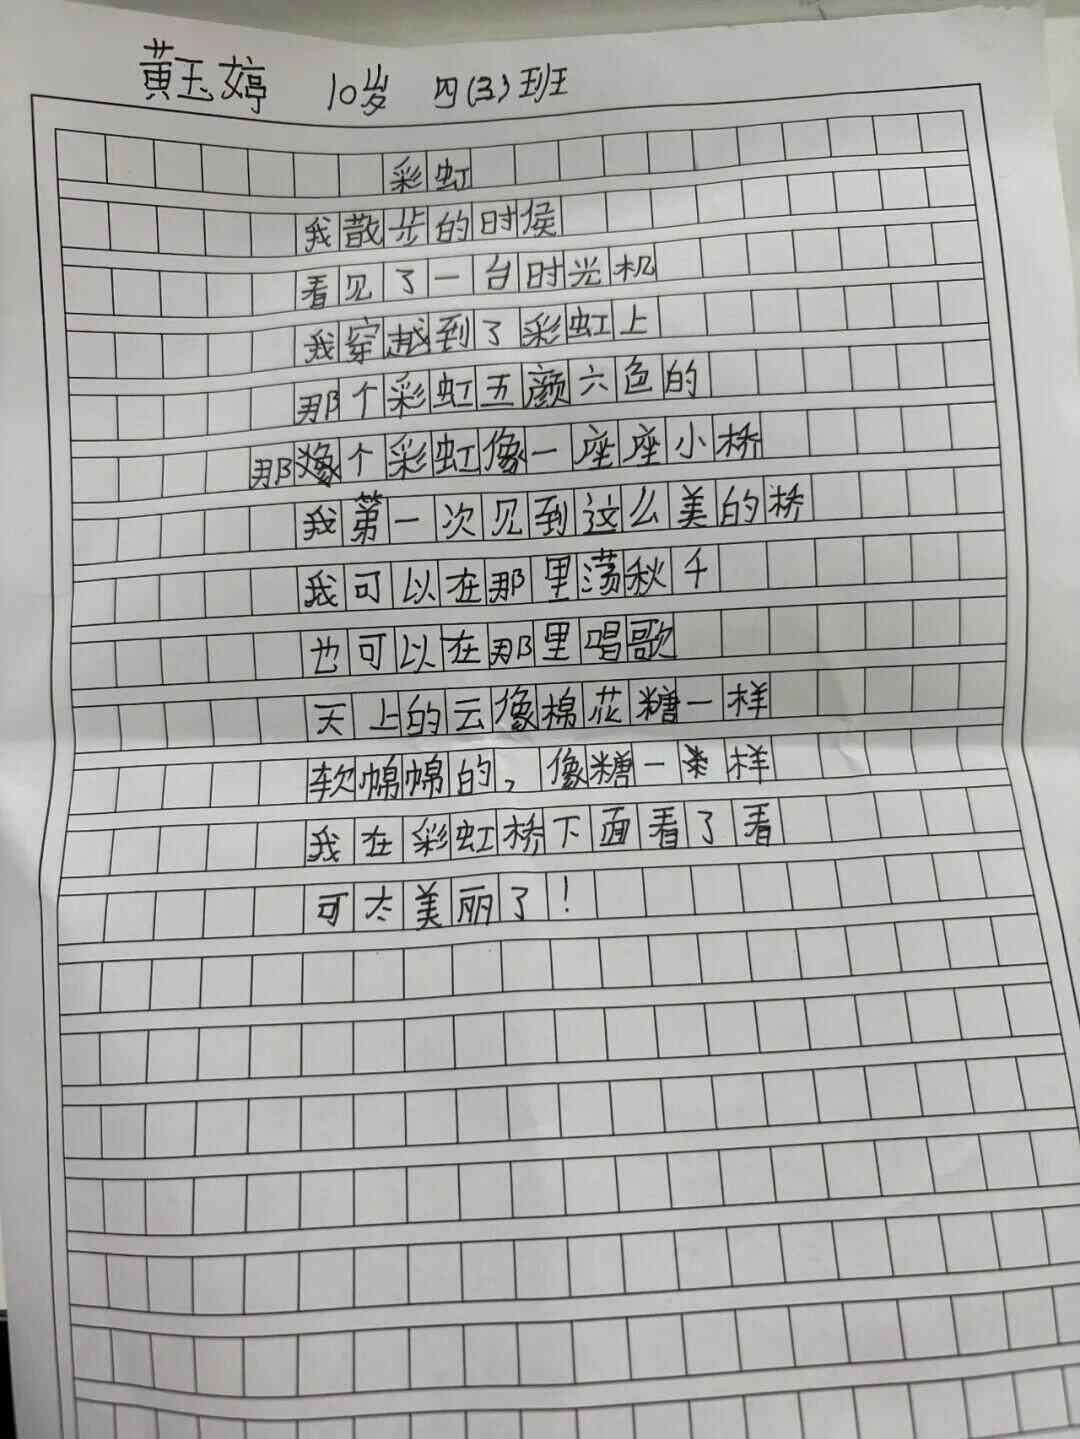 黄玉婷 10岁 四(3)班
彩虹
我散步的时侯
看见了一台时光机
我穿越到了彩虹上
那个彩虹五颜六色的
那个彩虹像一座座小桥
我第一次见到这么美的桥
我可以在那里荡秋千
也可以在那里唱歌
天上的云像棉花糖一样
软绵绵的，像糖一样
我在彩虹桥下面看了看
可太美丽了！